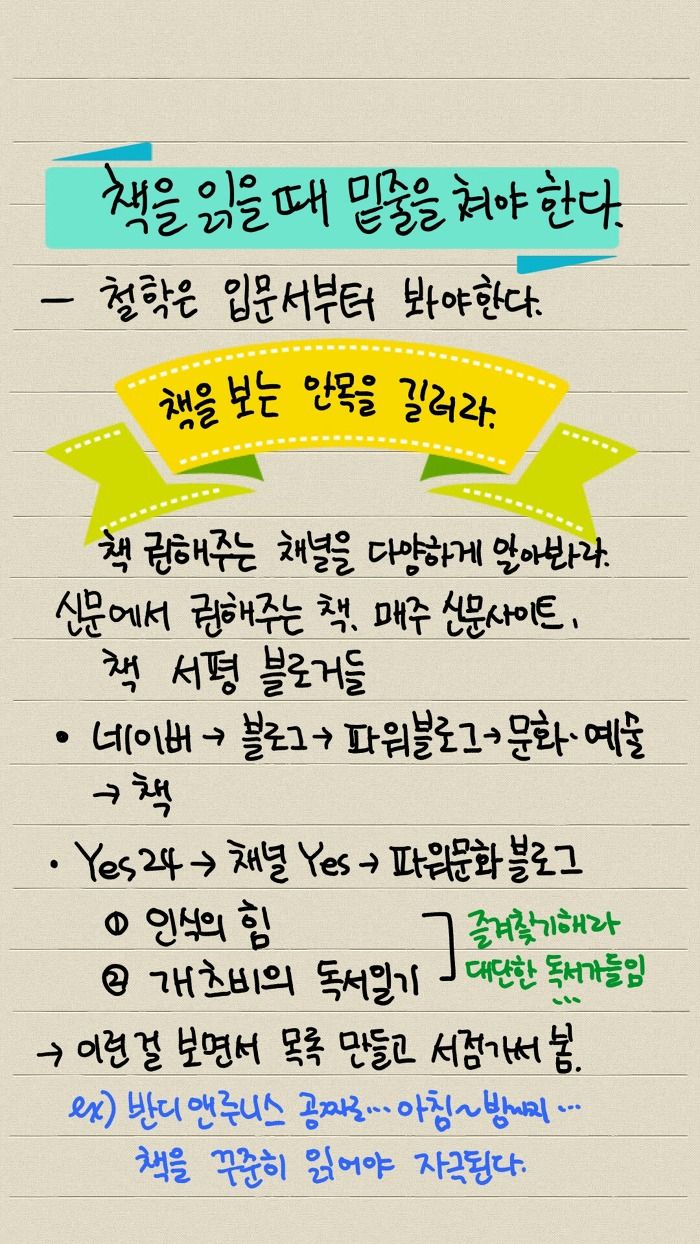 책을 읽을 때 밑줄을 쳐야 한다.
― 철학은 입문서부터 봐야한다.
책을 보는 안목을 길러라.
책 권해주는 채널을 다양하게 알아봐라.
신문에서 권해주는 책. 매주 신문사이트,
책 서평 블로거들
• 네이버 → 블로그 → 파워블로그 → 문화·예술
→ 책
• Yes24 → 채널 Yes → 파워문화블로그
① 인식의 힘
② 개츠비의 독서일기
즐겨찾기해라
대단한 독서가들임
...
→ 이런걸 보면서 목록 만들고 서점가서 봄.
ex) 반디앤루니스 공짜로... 아침~밤까지...
책을 꾸준히 읽어야 자극된다.